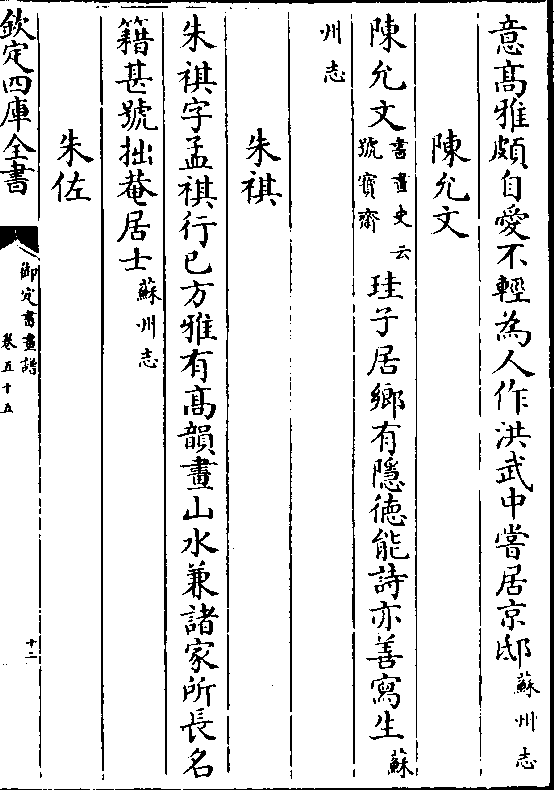 意髙雅頗自愛不輕為人作洪武中嘗居京邸蘇州志
陳允文
陳允文書畫史云號寳齋珪子居鄉有隱徳能詩亦善寫生蘇
州志
朱祺
朱祺字孟祺行已方雅有髙韻畫山水兼諸家所長名
籍甚號拙菴居士蘇州志
朱佐
欽定四庫全書
御定書畫譜
卷五十五
十二